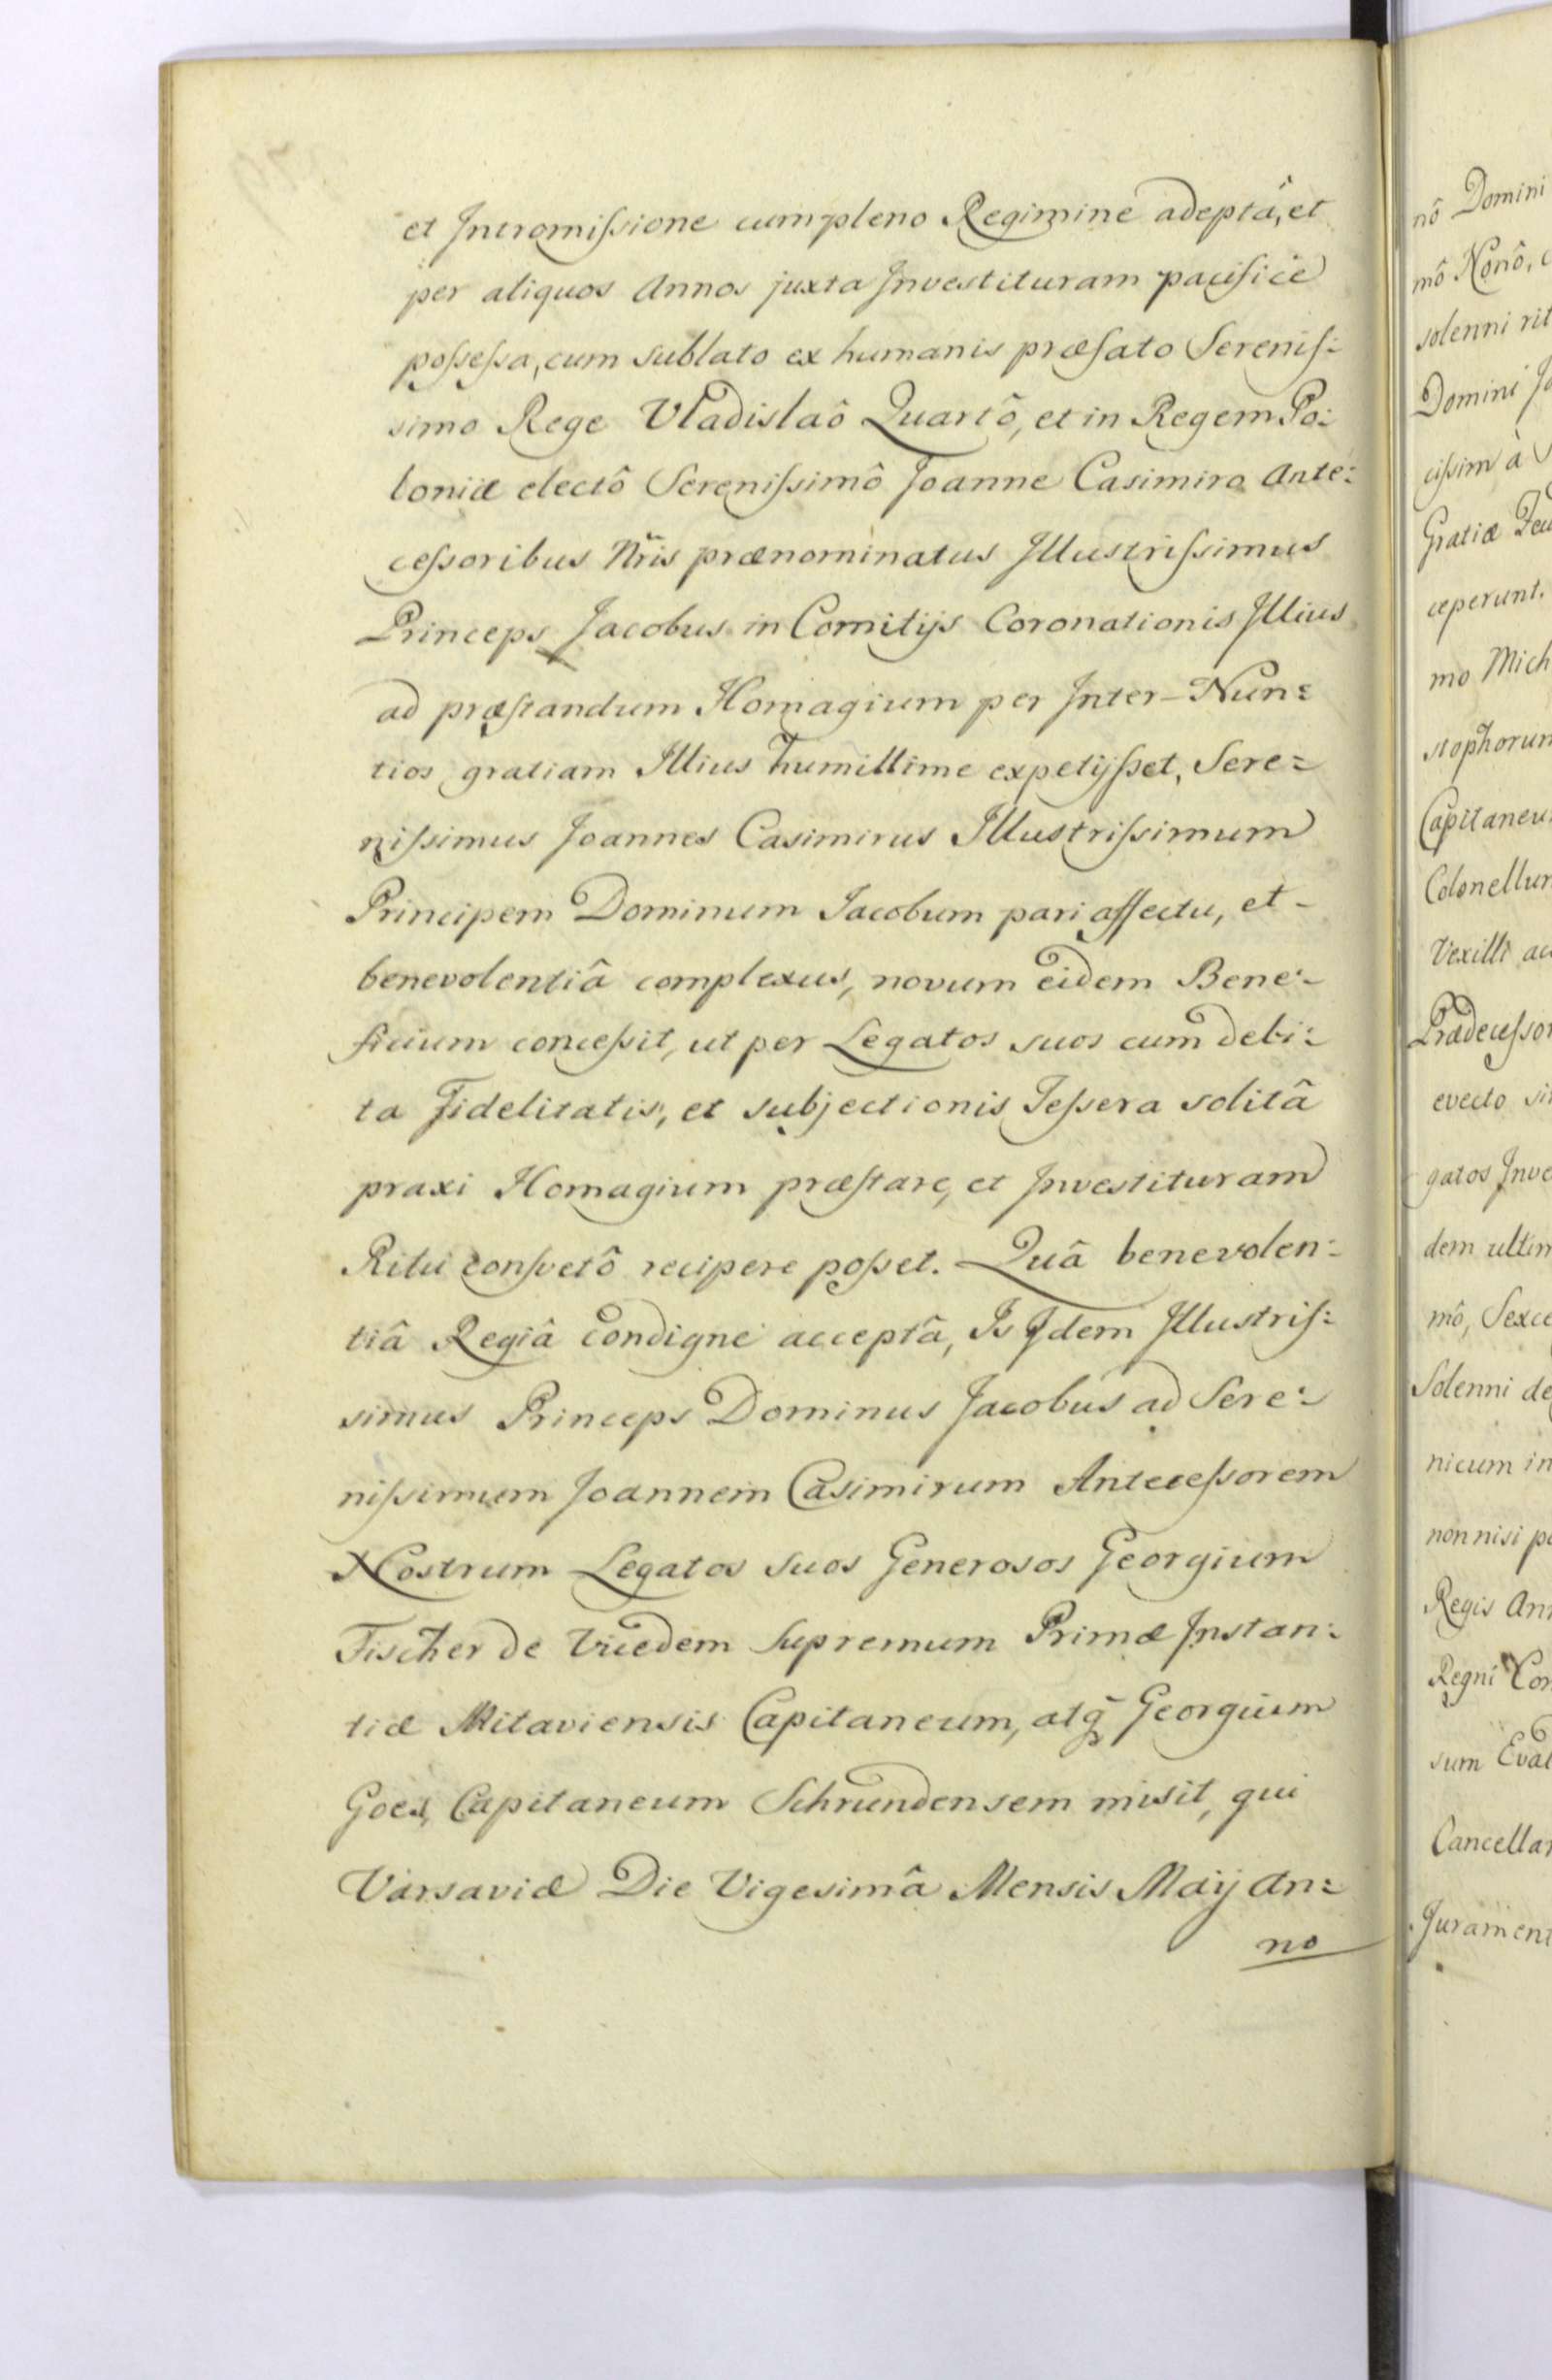 et Intromiſsione cum pleno Regimine adeptâ, et
per aliquos Annos juxta Investituram pacificè
poſseſsa, cum sublato ex humanis præfato Sereniſ:
simo Rege Vladislaô Quartô, et in Regem Po:
loniæ electô Sereniſsimô Joanne Casimiro Ante:
ceſsoribus Nris prænominatus Illustriſsimus
Princeps Jacobus in Comitijs Coronationis Illius
ad præſtandum Homagium per Inter-Nun:
tios gratiam Illius humillime expetijſset, Sere:
niſsimus Joannes Casimirus Illustriſsimum
Principem Dominum Jacobum pari affectu, et -
benevolentiâ complexus, novum eidem Bene:
ficium conceſsit, ut per Legatos suos cum debi:
ta Fidelitatis, et subjectionis Teſsera solitâ
praxi Homagium præſtare, et Investituram
Ritu conſvetô recipere poſset. Quâ benevolen:
tiâ Regiâ condignè acceptâ, Is Idem Illustriſ:
simus Princeps Dominus Jacobus ad Sere:
niſsimum Joannem Casimirum Anteceſsorem
Nostrum Legatos suos Generosos Georgium
Fischer de Vicedem Supremum Primæ Instan:
tiæ Mitaviensis Capitaneum, atq Georgium
Goes, Capitaneum Schrundensem misit, qui
Varsaviæ Die Vigesimâ Mensis Maij An:
no
nô Domini
mô Nonô,
solenni rit
Domini
ciſsim à
Gratiæ
ceperunt.
mo Mich
stophorum
Capitaneu
Colonellum
Vexilli
Prædeceſsor
evecto
gatos Inve
dem ultim
mô, Sexce
Solenni de
nicum in
non nisi
Regis An
Regni Con
sum
Cancellar
Jurament